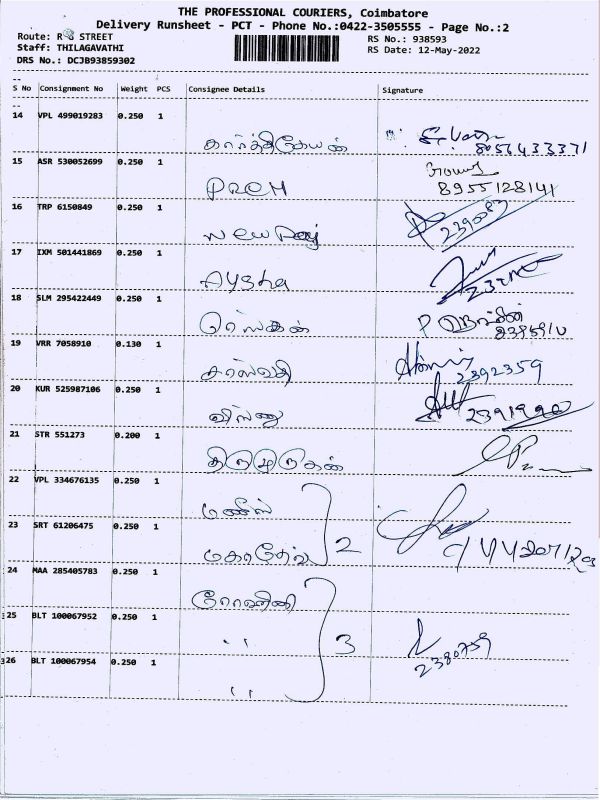 THE PROFESSIONAL COURIERS, Coimbatore
Delivery Runsheet - PCT - Phone No.:0422-3505555 - Page No.:2
Route: R G STREET RS No.: 938593
Staff: THILAGAVATHI RS Date: 12-May-2022
DRS No.: DCJB93859302
S No Consignment No Weight PCS Consignee Details Signature
14 VPL 499019283 0.250 1
கார்த்திகேயன் 8056433371
15 ASR 530052699 0.250 1
PREM 8955128141
16 TRP 6150849 0.250 1
239083
17 IXM 501441869 0.250 1
Aysha
18 SLM 295422449 0.250 1
19 VRR 7058910 0.130 1
சரஸ்வதி 2392359
20 KUR 525987106 0.250 1
விஸ்ணு
21 STR 551273 0.200 1
திருமுருகன்
22 VPL 334676135 0.250 1
மணீஸ்
23 SRT 61206475 0.250 1
மகாதேவ 2
24 MAA 285405783 0.250 1
ரோஷினி
25 BLT 100067952 0.250 1
" 3 2380759
26 BLT 100067954 0.250 1
"